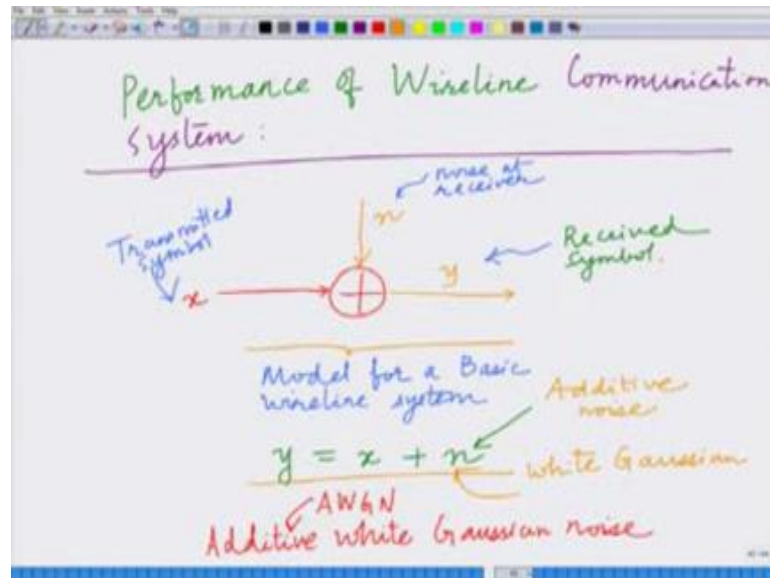 Performance of Wireline Communication
System :
noise at
receiver
n
Transmitted
symbol
x
y
Received
symbol.
Model for a Basic
wireline system
Additive
noise
y = x + n
white Gaussian
AWGN
Additive white Gaussian noise